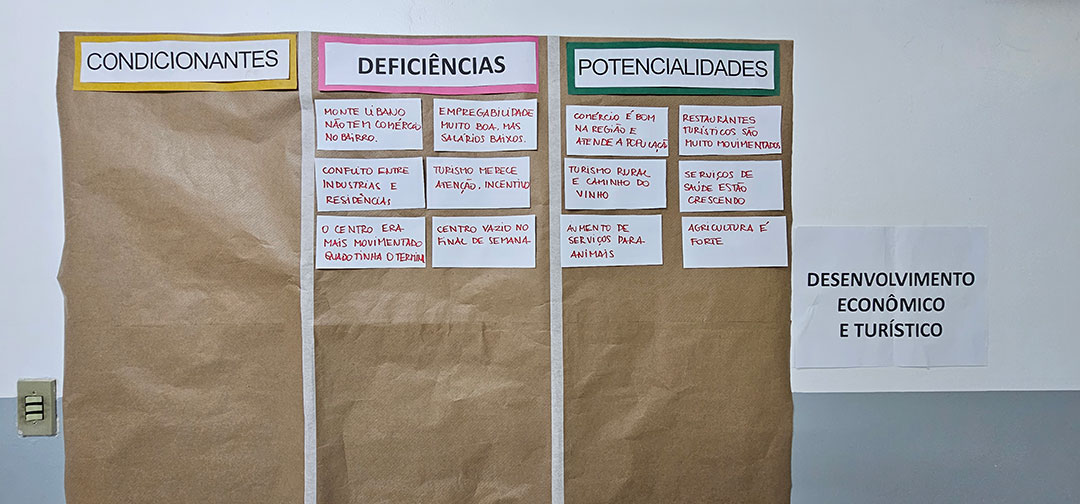 CONDICIONANTES
DEFICIÊNCIAS
POTENCIALIDADES
MONTE LÍBANO
NÃO TEM COMÉRCIO
NO BAIRRO.
EMPREGABILIDADE
MUITO BOA. MAS
SALÁRIOS BAIXOS.
CONFLITO ENTRE
INDUSTRIAS E
RESIDÊNCIAS
TURISMO MERECE
ATENÇÃO. INCENTIVO
O CENTRO ERA
MAIS MOVIMENTADO
QUADO TINHA O TERMINL
CENTRO VAZIO NO
FINAL DE SEMANA
COMÉRCIO É BOM
NA REGIÃO E
ATENDE A POPULAÇÃO
RESTAURANTES
TURÍSTICOS SÃO
MUITO MOVIMENTADOS
TURISMO RURAL
E CAMINHO DO
VINHO
SERVIÇOS DE
SAÚDE ESTÃO
CRESCENDO
AUMENTO DE
SERVIÇOS PARA
ANIMAIS
AGRICULTURA É
FORTE
DESENVOLVIMENTO
ECONÔMICO
E TURÍSTICO